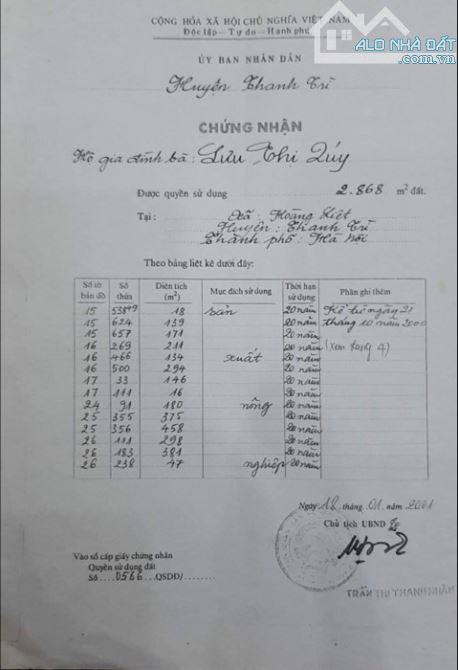 CỘNG HÒA XÃ HỘI CHỦ NGHĨA VIỆT NAM
Độc lập — Tự do — Hạnh phúc
ALO NHÀ ĐẤT
.com.vn
ỦY BAN NHÂN DÂN
Huyện Thanh Trì
CHỨNG NHẬN
Hộ gia đình bà: Lưu Thị Qúy
Được quyền sử dụng 2.868 m² đất.
Tại : Xã : Hoàng Liệt
Huyện : Thanh Trì
Thành phố : Hà Nội
Theo bảng liệt kê dưới đây:
Số tờ bản đồ Số thửa Diện tích (m²) Mục đích sử dụng Thời hạn sử dụng Phần ghi thêm
15 18 sản 20 năm Kể từ ngày 21
15 624 139 20 năm tháng 10 năm 2000
15 657 171 20 năm
16 269 211 20 năm (Xem trang 4)
16 466 134 xuất 20 năm
16 500 294 20 năm
17 33 146 20 năm
17 111 16 20 năm
24 91 180 nông 20 năm
25 355 375 20 năm
25 356 458 20 năm
26 111 298 20 năm
26 183 381 20 năm
26 238 47 nghiệp 20 năm
Ngày 18 tháng 01 năm 2001
Chủ tịch UBND
Vào sổ cấp giấy chứng nhận
Quyền sử dụng đất
Số 0566 QSDĐ/
TRẦN THỊ THANH NHÀN